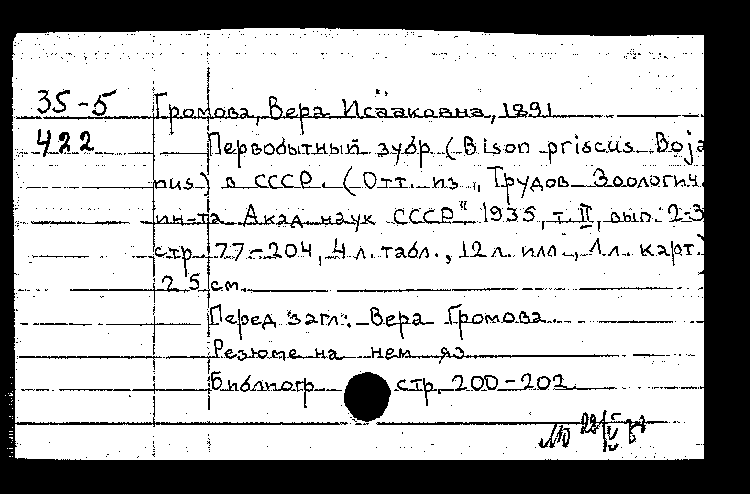 35-5 Громова, Вера Исааковна, 1891
422 Первобытный зубр (Bison priscus Boja
nus) в СССР. (Отт. из „Трудов Зоологич.
ин-та Акад. наук СССР" 1935, т. II, вып. 2-3
стр. 77-204, 4 л. табл., 12 л. илл., 1 л. карт.)
25 см.
Перед загл.: Вера Громова.
Резюме на нем яз
Библиогр стр. 200-202.